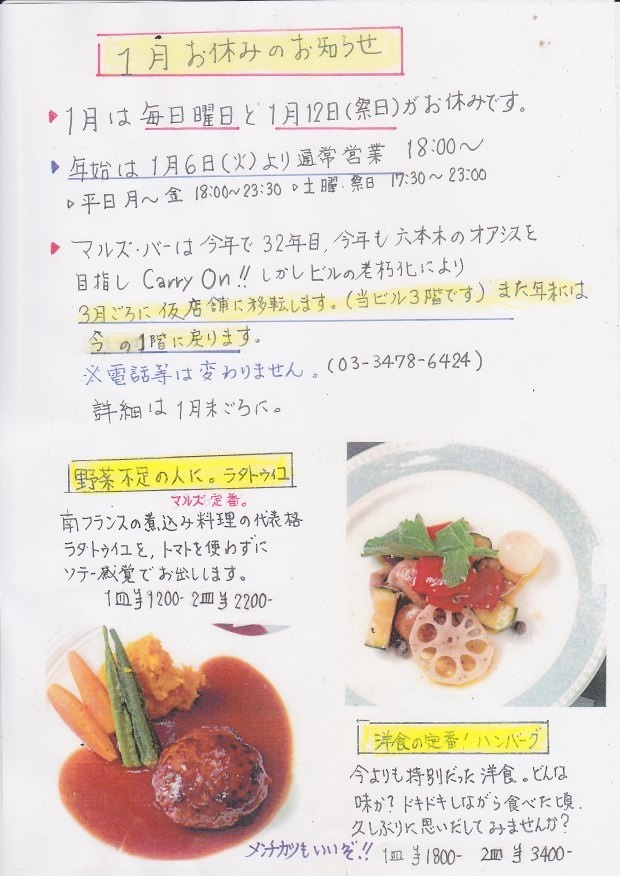 1月 お休みのお知らせ
1月は 毎日曜日と 1月12日(祭日)がお休みです。
年始は 1月6日(火)より通常営業 18:00〜
平日 月〜金 18:00〜23:30 土曜・祭日 17:30〜23:00
マルズ・バーは 今年で 32年目, 今年も 六本木のオアシスを
目指し Carry On!! しかしビルの老朽化により
3月ごろに 仮店舗に移転します。(当ビル3階です) また年末には
今の1階に戻ります。
※電話等は変わりません。(03-3478-6424)
詳細は 1月末ごろに。
野菜不足の人に。ラタトゥイユ
マルズ定番。
南フランスの煮込み料理の代表格
ラタトゥイユを, トマトを使わずに
ソテー感覚でお出しします。
1皿 ¥1200- 2皿 ¥2200-
洋食の定番! ハンバーグ
今よりも特別だった洋食。どんな
味か? ドキドキしながら食べた頃.
久しぶりに思いだしてみませんか?
メンチカツもいいぞ.!!
1皿 ¥1800- 2皿 ¥3400-